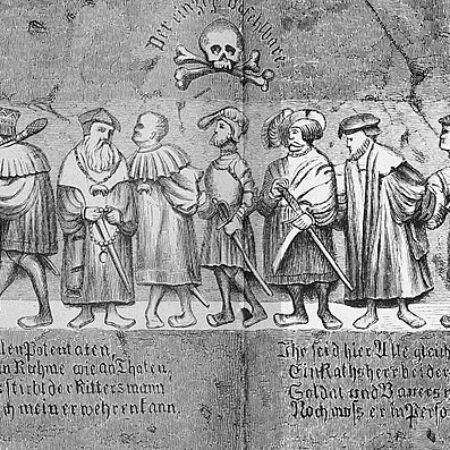 Der einzig
len Potentaten,
n Ruhme wie an Thaten,
s stirbt der Rittersmann
ch meiner wehren kann.
Ihr seid hier Alle gleich
Ein Rathsherr bei der
Soldat und Bauers
Noch muss er in Perso